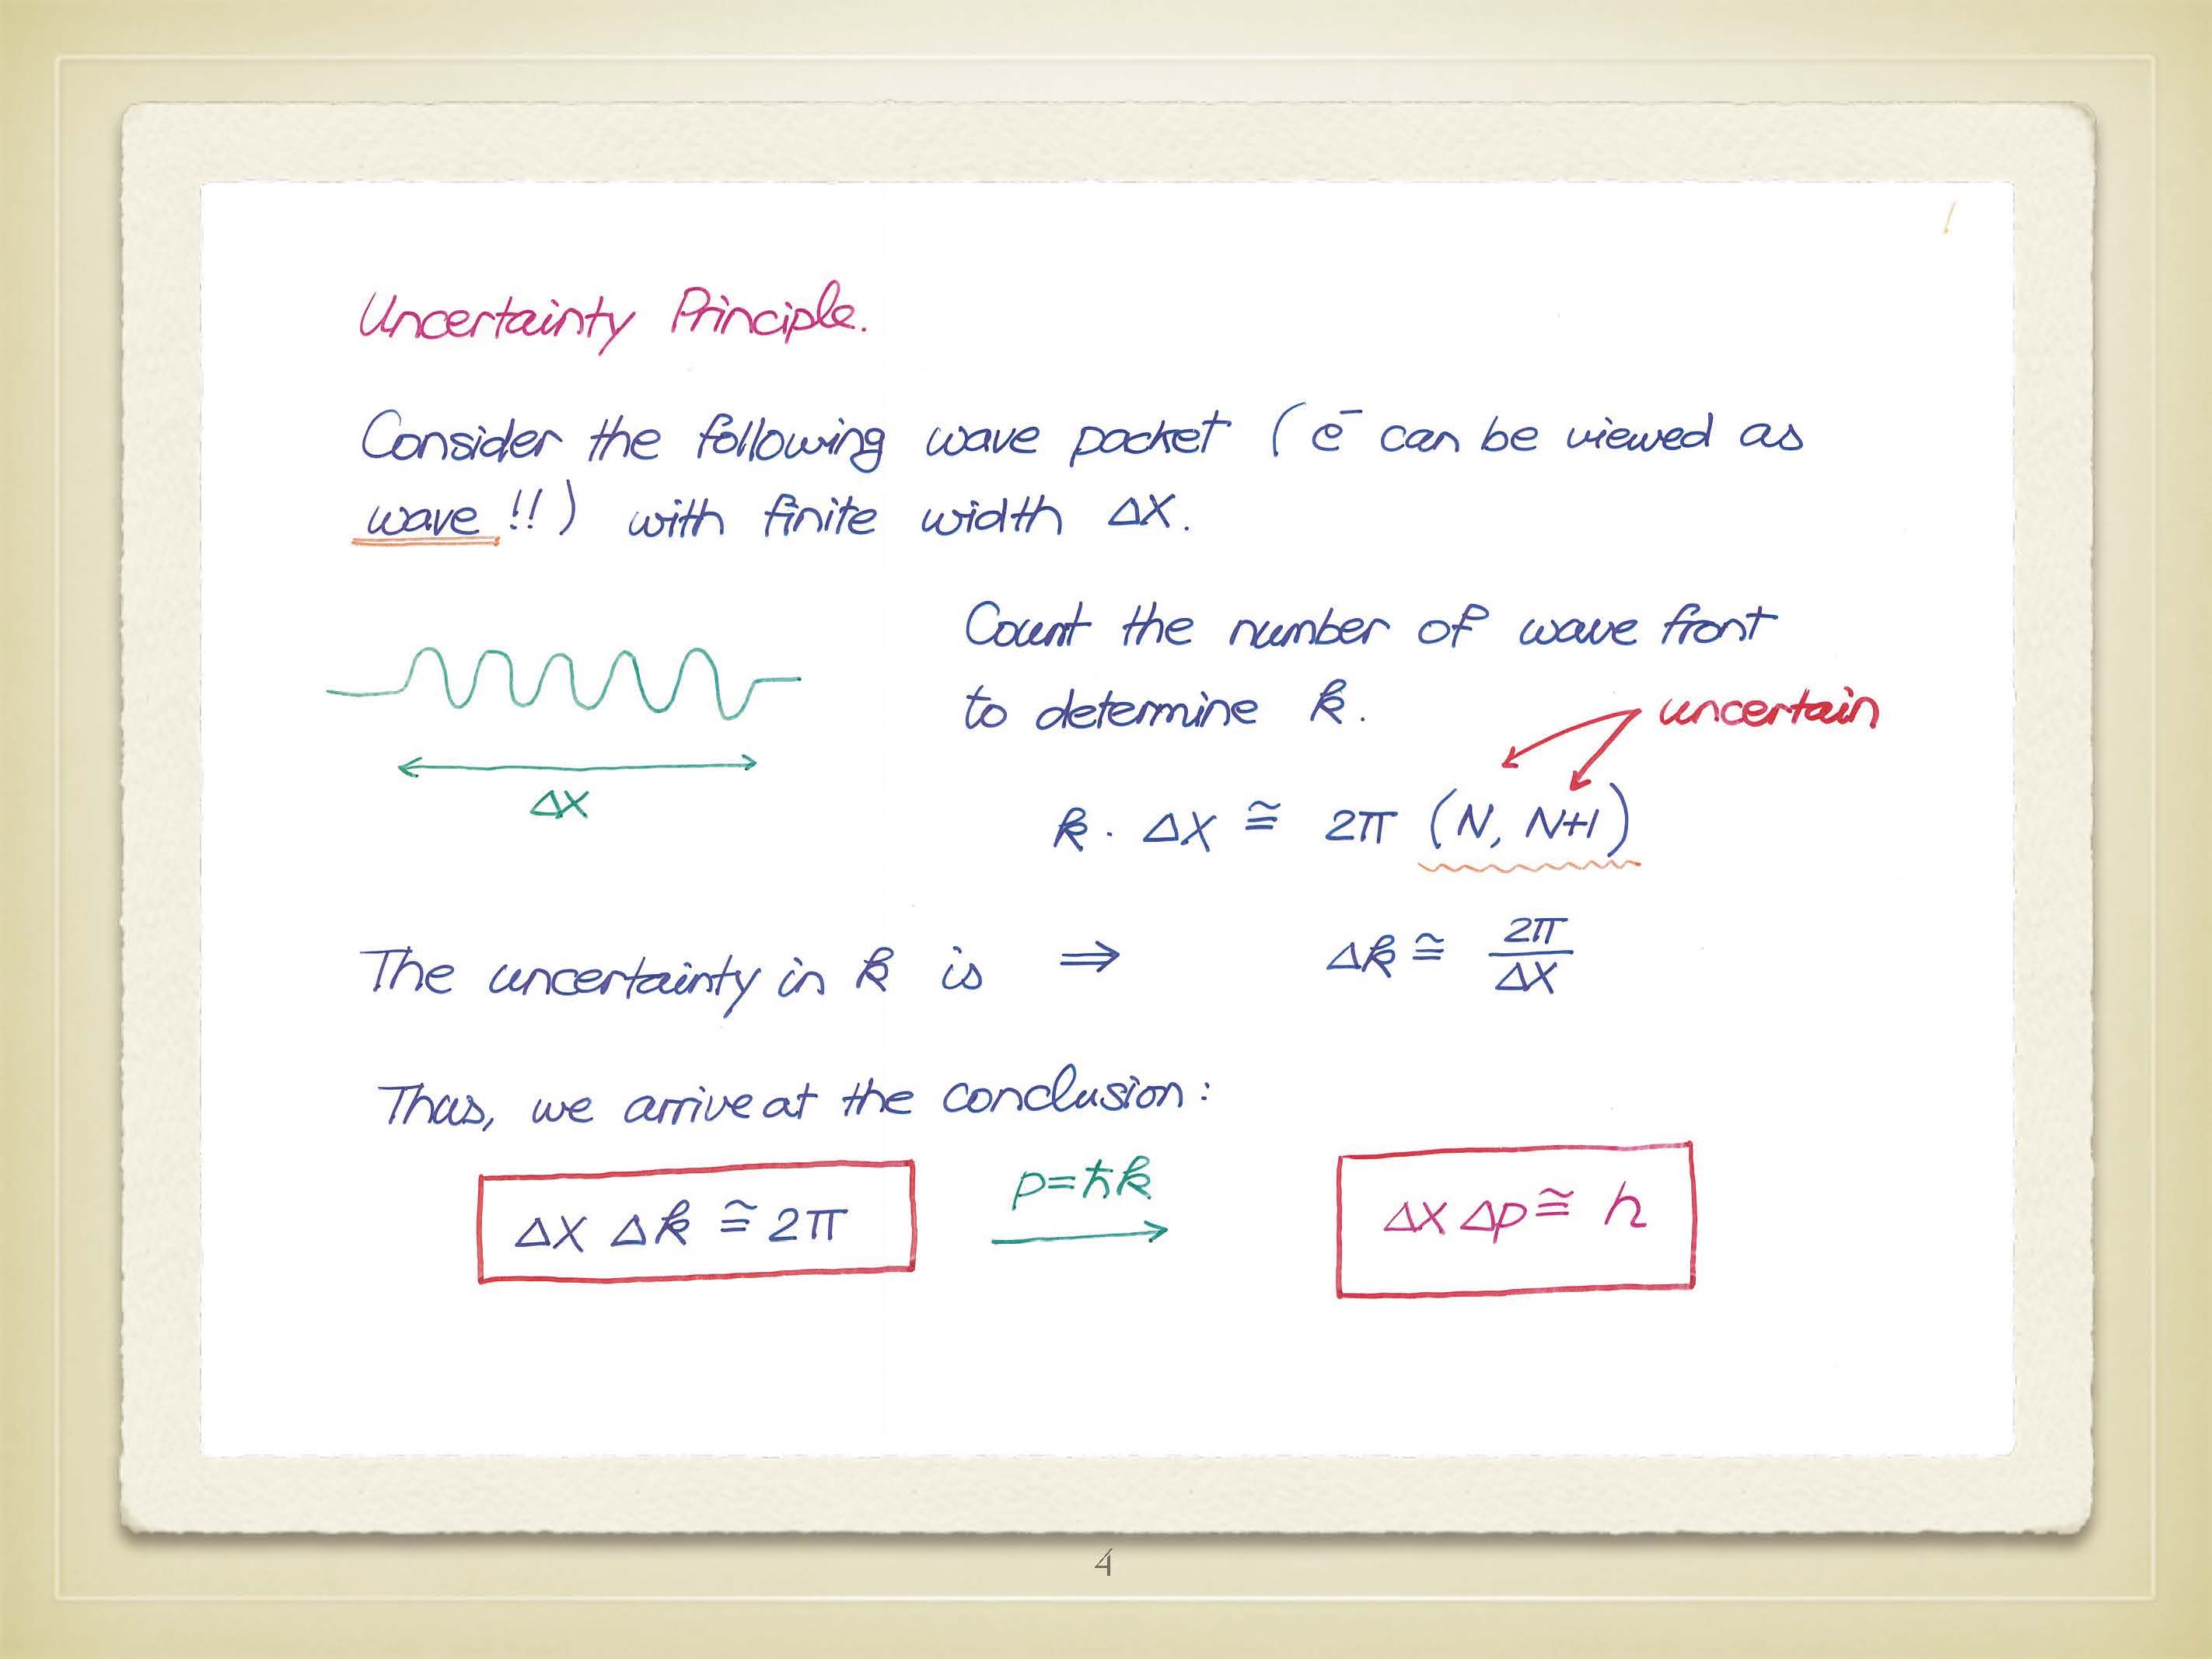 Uncertainty Principle.
Consider the following wave packet (e⁻ can be viewed as
wave !!) with finite width ΔX.
Count the number of wave front
to determine k.
uncertain
ΔX
k · ΔX ≅ 2π (N, N+1)
The uncertainty in k is ⇒ Δk ≅ 2π/ΔX
Thus, we arrive at the conclusion:
ΔX Δk ≅ 2π
p=ħk
ΔX Δp ≅ h
4